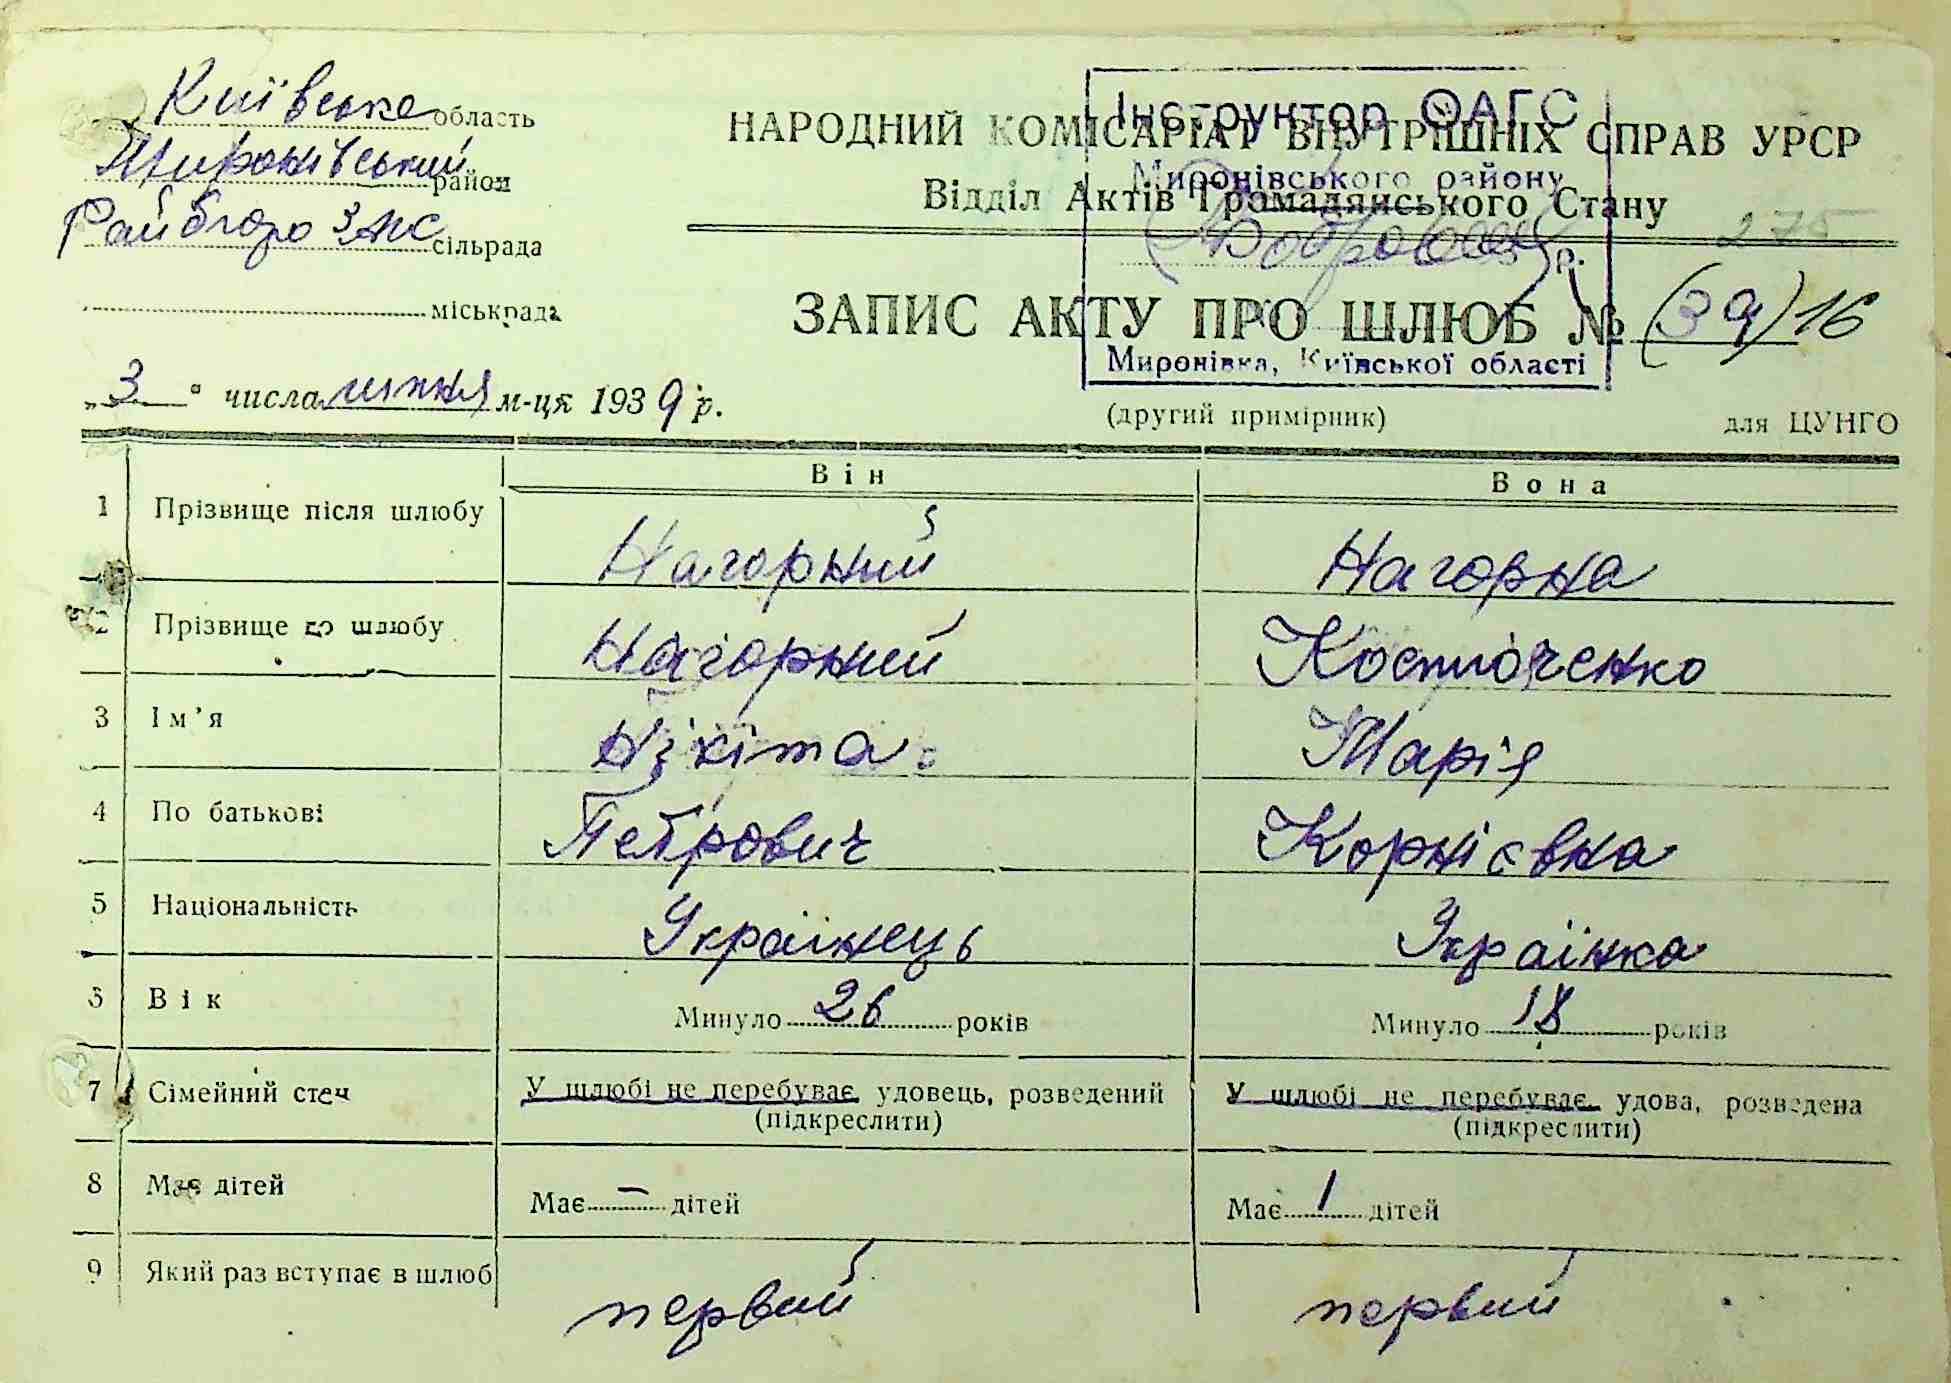 Київське область
Миронівський район
Райбюро ЗАГС сільрада
міськрада
НАРОДНИЙ КОМІСАРІАТ ВНУТРІШНІХ СПРАВ УРСР
Відділ Актів Громадянського Стану
275
Інструктор ОАГС
Миронівського району
р.
Миронівка, Київської області
ЗАПИС АКТУ ПРО ШЛЮБ № (39) 16
„3" числа липня м-ця 1939 р.
(другий примірник)
для ЦУНГО
Він
Вона
1 Прізвище після шлюбу Нагорний Нагорна
2 Прізвище до шлюбу Нагорний Костюченко
3 Ім'я Нікіта Марія
4 По батькові Петрович Корнієвна
5 Національність Українець Українка
6 Вік Минуло 26 років Минуло 18 років
7 Сімейний стан У шлюбі не перебуває удовець, розведений У шлюбі не перебуває удова, розведена
(підкреслити) (підкреслити)
8 Має дітей Має — дітей Має 1 дітей
9 Який раз вступає в шлюб первий первий